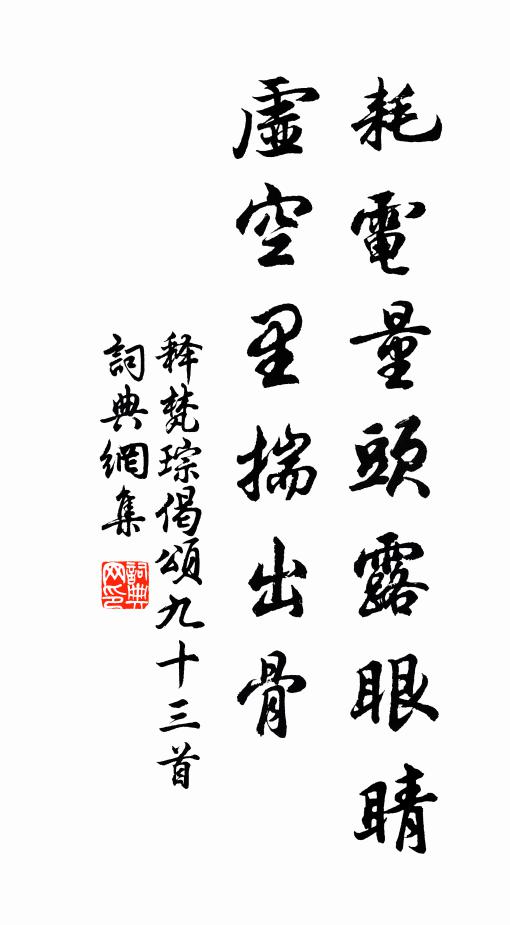 耗電量頭露眼睛
虛空里揣出骨
释梵琮偈頌九十三首
詞典網集
詞典網印